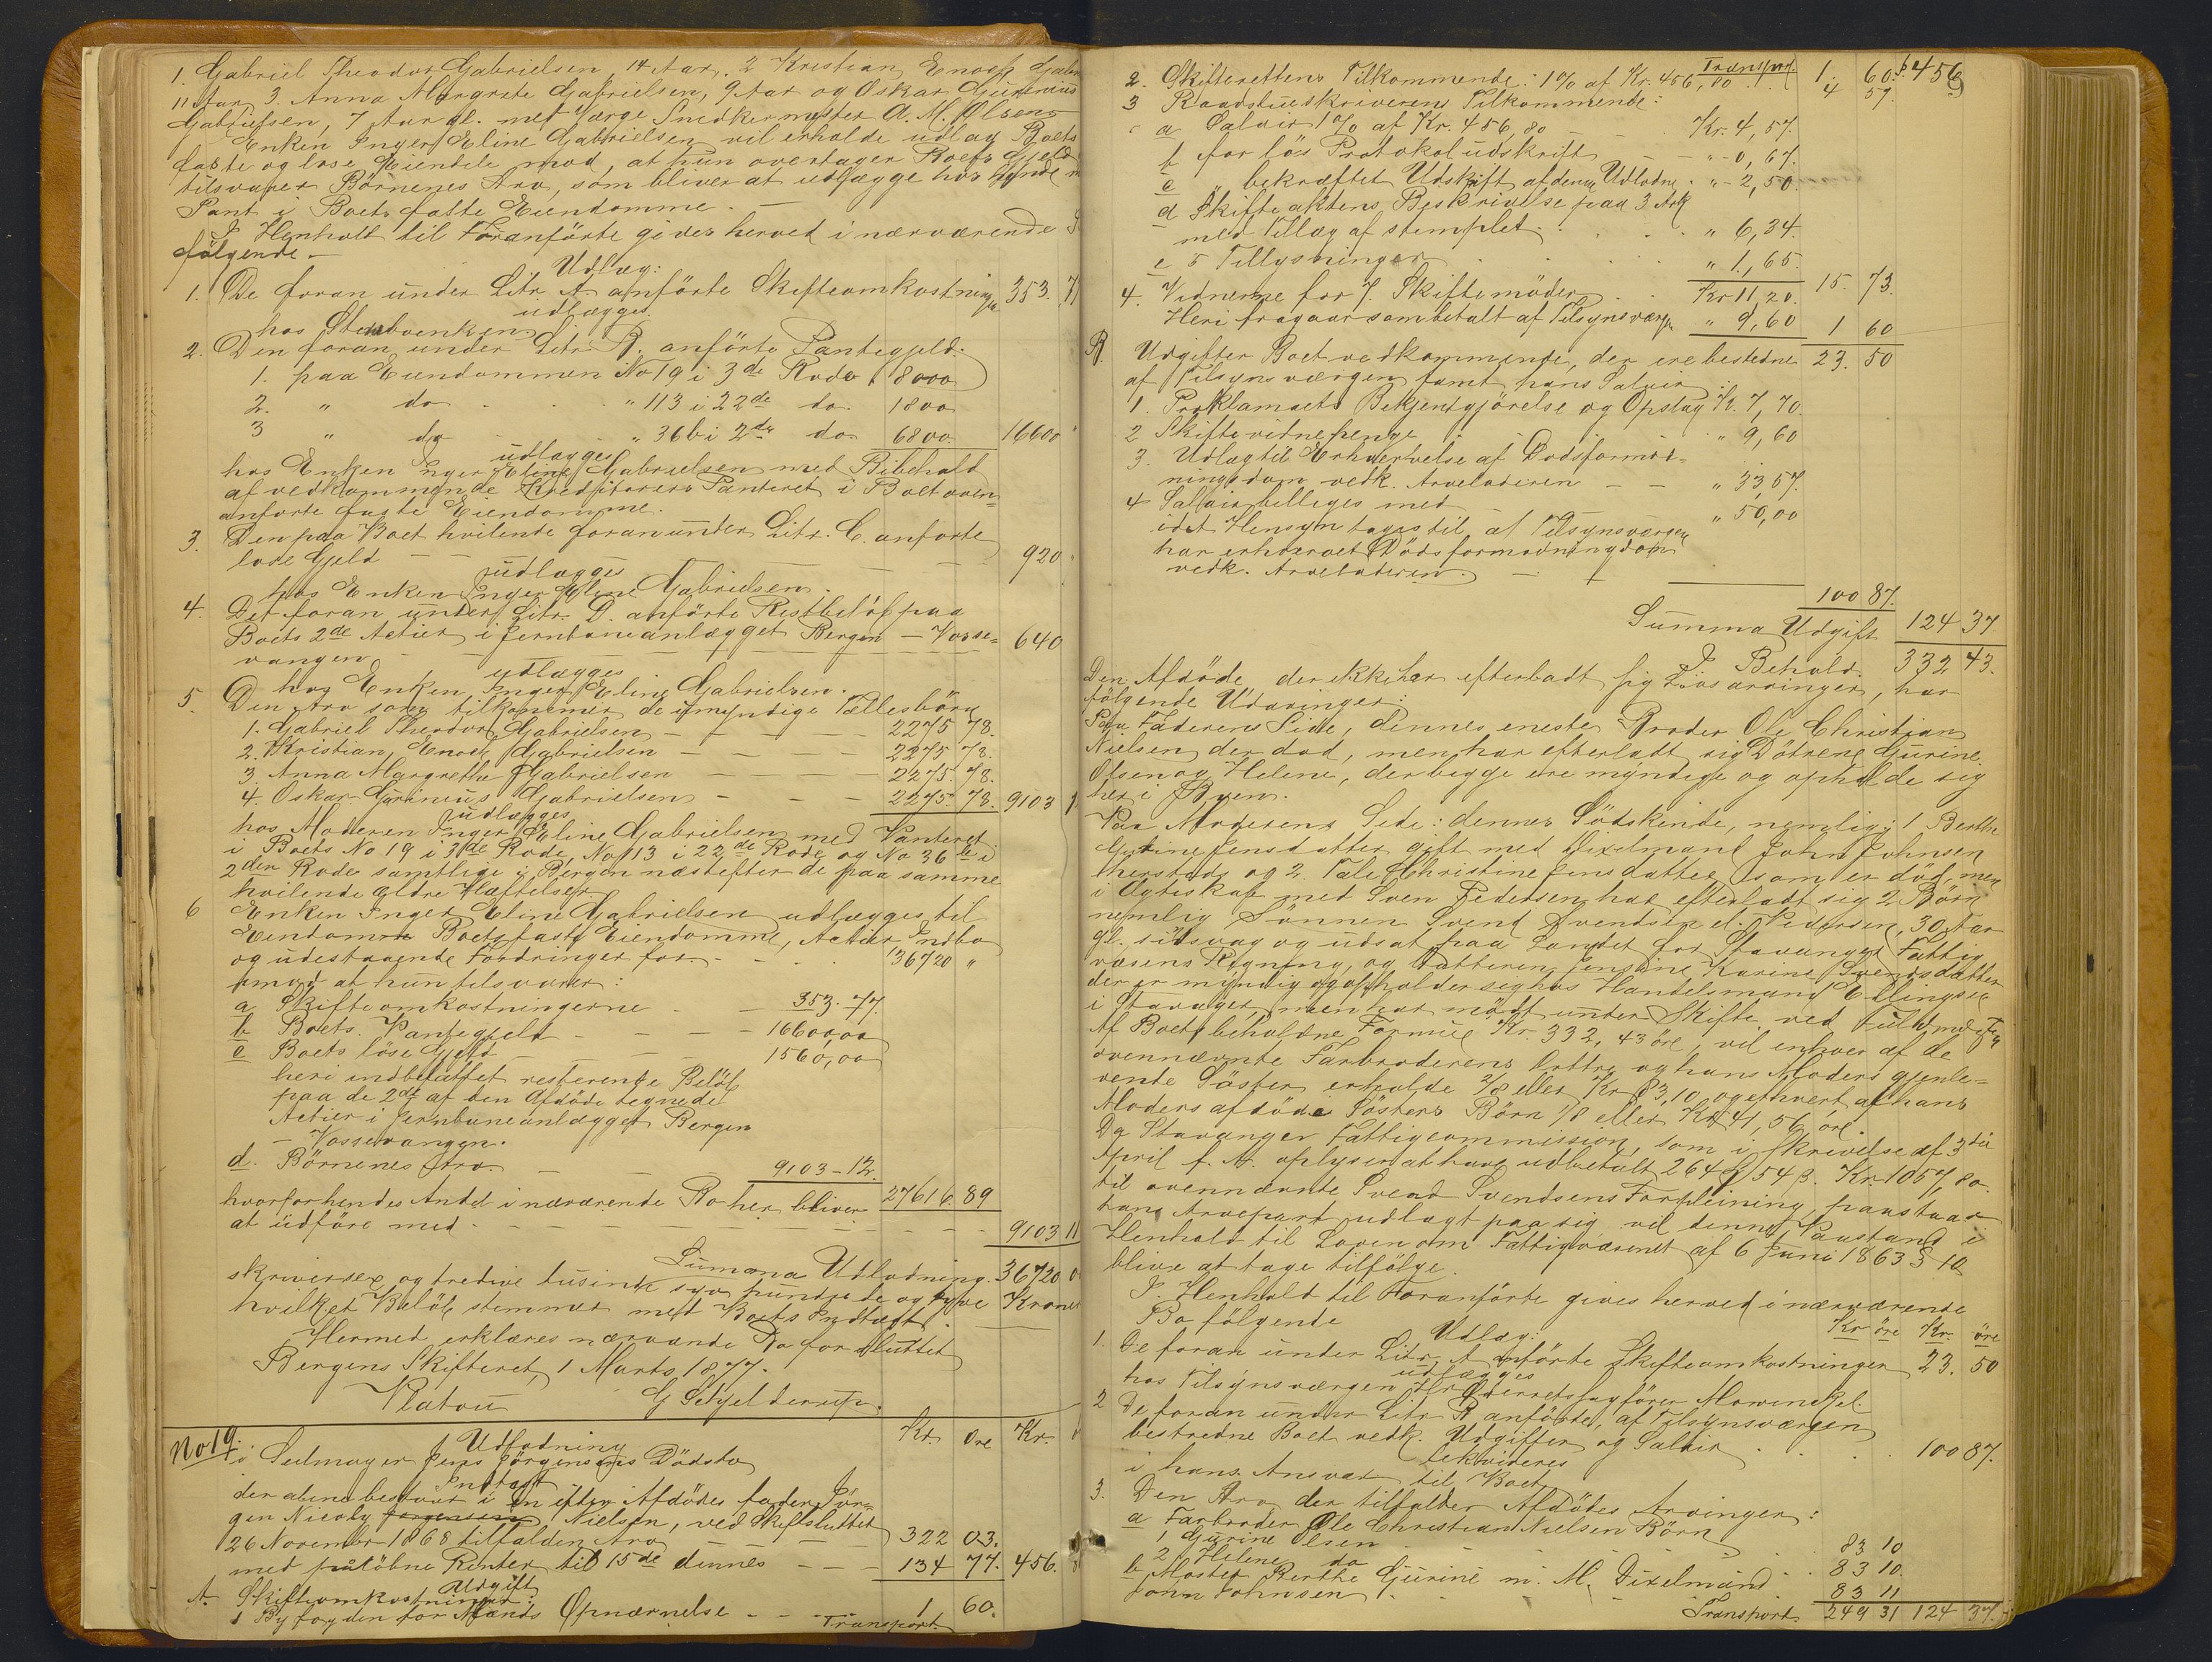 1. Gabriel Theodor Gabrielsen, 14 Aar. 2 Kristian Enoch Gabri
11 Aar 3. Anna Margrete Gabrielsen, 9 Aar og Oskar Gurinius
Gabrielsen, 7 Aar gl. med Værge Snedkermester A. M. Olsen
Enken Inger Eline Gabrielsen vil erholde udlag Boets
faste og løse Eiendele mod, at hun overtager Boets Gjeld
tilsvarer Børnenes Arv, som bliver at udlægge hos hende m
Pant i Boets faste Eiendomme. —
I Henhold til Foranførte gives herved i nærværende
følgende —
Udlæg:
1. De foran under Litr. A. anførte Skifteomkostninger 353. 77
udlægges
hos Stervboenken
2. Den foran under Litr. B. anførte Pantegjeld:
1. paa Eiendommen No 19 i 3de Rode 8000
2. " do " 113 i 22de do. 1800
3 " do " 36b i 2de do 6800 16600
udlægges
hos Enken Inger Eline Gabrielsen med Bibehold
af vedkommende Kreditorers Panteret i Boet oven=
anførte faste Eiendomme.
3. Den paa Boet hvilende foran under Litr. C. anførte
løse Gjeld — — — — — 920
udlægges
hos Enken Inger Eline Gabrielsen.
4. Det foran under Litr. D. anførte Restbeløb paa
Boets 2de Actier i Jernbaneanlægget Bergen — Vosse= 640
vangen
udlægges
hos Enken, Inger Eline Gabrielsen.
5. Den Arv som tilkommer de umyndige Fællesbørn
1. Gabriel Theodor Gabrielsen — — — 2275 78.
2. Kristian Enoch Gabrielsen — — — 2275 78.
3. Anna Margrethe Gabrielsen — — — 2275. 78.
4. Oskar Gurinius Gabrielsen — — — 2275. 78. 9103 1
udlægges
hos Moderen Inger Eline Gabrielsen med Panteret
i Boets No 19 i 3de Rode, No 113 i 22de Rode og No 36 b i
2den Rode samtlige i Bergen næstefter de paa samme
hvilende ældre Hæftelser
6 Enken Inger Eline Gabrielsen udlægges til
Eiendom Boets faste Eiendomme, Actier Indbo
og udestaaende Fordringer for. — 36720 "
imod at hun tilsvarer:
a Skifteomkostningerne — 353. 77.
b Boets Pantegjeld — — — 16600,00
c Boets løse Gjeld — — — 1560,00
heri indbefattet resterende Beløb
paa de 2de af den Afdøde tegnede
Actier i Jernbaneanlægget Bergen
— Vossevangen.
d. Børnenes Arv — — 9103 - 12.
hvorfor hendes Andel i nærværende Bo her bliver 27616 89
at udføre med — — — — — 9103 11
Summa Udlodning. 36720 0
skriver sex og tredive tusinde syv hundrede og tyve Kroner
hvilket Beløb stemmer med Boets Indtægt.
Hermed erklæres nærværende Bo for sluttet
Bergens Skifteret, 1 Marts 1877.
Platou G Schjelderup.
No 19. Udlodning Kr. Øre Kr.
i Seilmager Jens Jørgensens Dødsbo
Indtægt
der alene bestaar i en efter Afdødes fader Jør=
gen Nicolay Jørgensen Nielsen, ved Skiftesluttet
26 November 1868 tilfalden Arv — — 322 03.
med påløbne Renter til 15de dennes — — 134 77. 456.
Udgift
A. Skifteomkostninger:
1 Byfogden for Mands Opnævnelse — — 1 60.
Transport
Transport 1. 60. 456
2. Skifterettens Tilkommende: 1% af Kr. 456,80 4 57.
3 Raadstueskriverens Tilkommende:
a Salair 1% af Kr. 456,80 — — Kr. 4,57.
b for løs Protokoludskrift — — " 0,67.
c " bekræftet Udskrift af denne Udlodn. " 2,50.
d Skifteaktens Beskrivelse paa 3 Ark
med Tillæg af stemplet " 6,34.
e 5 Tillysninger " 1,65. 15. 73.
4. Vidnerne for 7. Skiftemøder Kr 11,20.
Heri fragaar som betalt af Tilsynsværgen " 9,60 1 60
B. Udgifter Boet vedkommende, der ere bestredne 23. 50
af Tilsynsværgen samt hans Salair:
1. Proklamaets Bekjendtgjørelse og Opslag Kr. 7,70.
2 Skiftevidnepenge " 9,60
3. Udlæg til Erhvervelse af Dødsformod=
ningsdom vedk. Arveladeren — — " 33,57.
4 Salair billiges med " 50,00
idet Hensyn tages til at Tilsynsværgen
har erhvervet Dødsformodningdom
vedk. Arveladeren.
100 87.
Summa Udgift 124 37.
I Behold. 332 43.
Den Afdøde, der ikke har efterladt sig Livsarvinger, har
følgende Udarvinger:
Paa Faderens Side, dennes eneste Broder Ole Christian
Nielsen der død, men har efterladt sig Døtrene Gurine
Olsen og Helene, der begge ere myndige og opholde sig
her i Byen.
Paa Moderens Side: dennes Sødskende, nemlig: 1 Berthe
Gurine Jensdatter gift med Dixelmand John Johnsen
hersteds og 2. Tale Christine Jensdatter, som er død, men
i Ægteskab med Sven Pedersen har efterladt sig 2 Børn
nemlig Sønnen Svend Svendsen el. Pedersen, 30 Aar
gl. sindsvag og udsat paa Landet for Stavanger Fattig
væsens Regning, og Datteren Jensine Karine Svendsdatter
der er myndig og opholder sig hos Handelsmand Ellingsen
i Stavanger, men har mødt under Skifte ved Fuldmægtig
Af Boets beholdne Formue Kr. 332, 43 øre, vil enhver af de
ovennævnte Farbroderens Døttre og hans Moders gjenle=
vende Søster erholde 2/8 eller Kr 83,10, og ethvert af hans
Moders afdøde Søsters Børn 1/8 eller Kr 41,56 øre.
Da Stavanger Fattigcommission, som i Skrivelse af 3die
April f. A. oplyser at have udbetalt 264 54 β. Kr 1057,80.
til ovennævnte Svend Svendsens Forpleining, paastaar
hans Arvepart udlagt paa sig vil denne Paastand i
Henhold til Loven om Fattigvæsenet af 6 Juni 1863 § 10
blive at tage tilfølge.
I Henhold til Foranførte gives herved i nærværende
Bo følgende
Udlæg: Kr øre Kr. øre
1. De foran under Litr. A anførte Skifteomkostninger 23. 50
udlægges
hos Tilsynsværgen Hr Overretssagfører Mowinckel.
2 De foran under Litr. B anførte, af Tilsynsværgen
bestredne Boet vedk. Udgifter og Salair 100 87.
likvideres
i hans Ansvar til Boet
3. Den Arv der tilfalder Afdødes Arvinger:
a Farbroder Ole Christian Nielsen Børn
1 Gurine Olsen 83 10
2 Helene do 83 10.
b Moster Berthe Gurine m. M. Dixelmand
John Johnsen 83 11
Transport. 249 31 124 37.